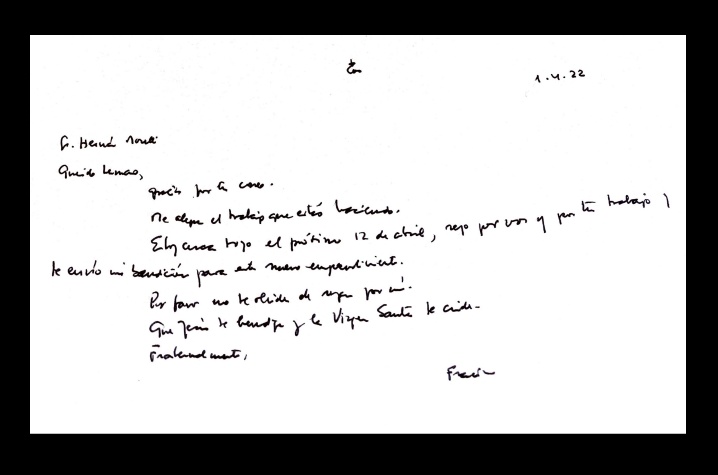 1.4.22
Sr. Hernán
Querido hermano,
gracias por tu correo.
Me alegra el trabajo que estás haciendo.
el próximo 12 de abril, rezo por vos y por tu trabajo y
te envío mi bendición para este nuevo emprendimiento.
Por favor no te olvides de rezar por mí.
Que Jesús te bendiga y la Virgen Santa te cuide.
Fraternalmente,